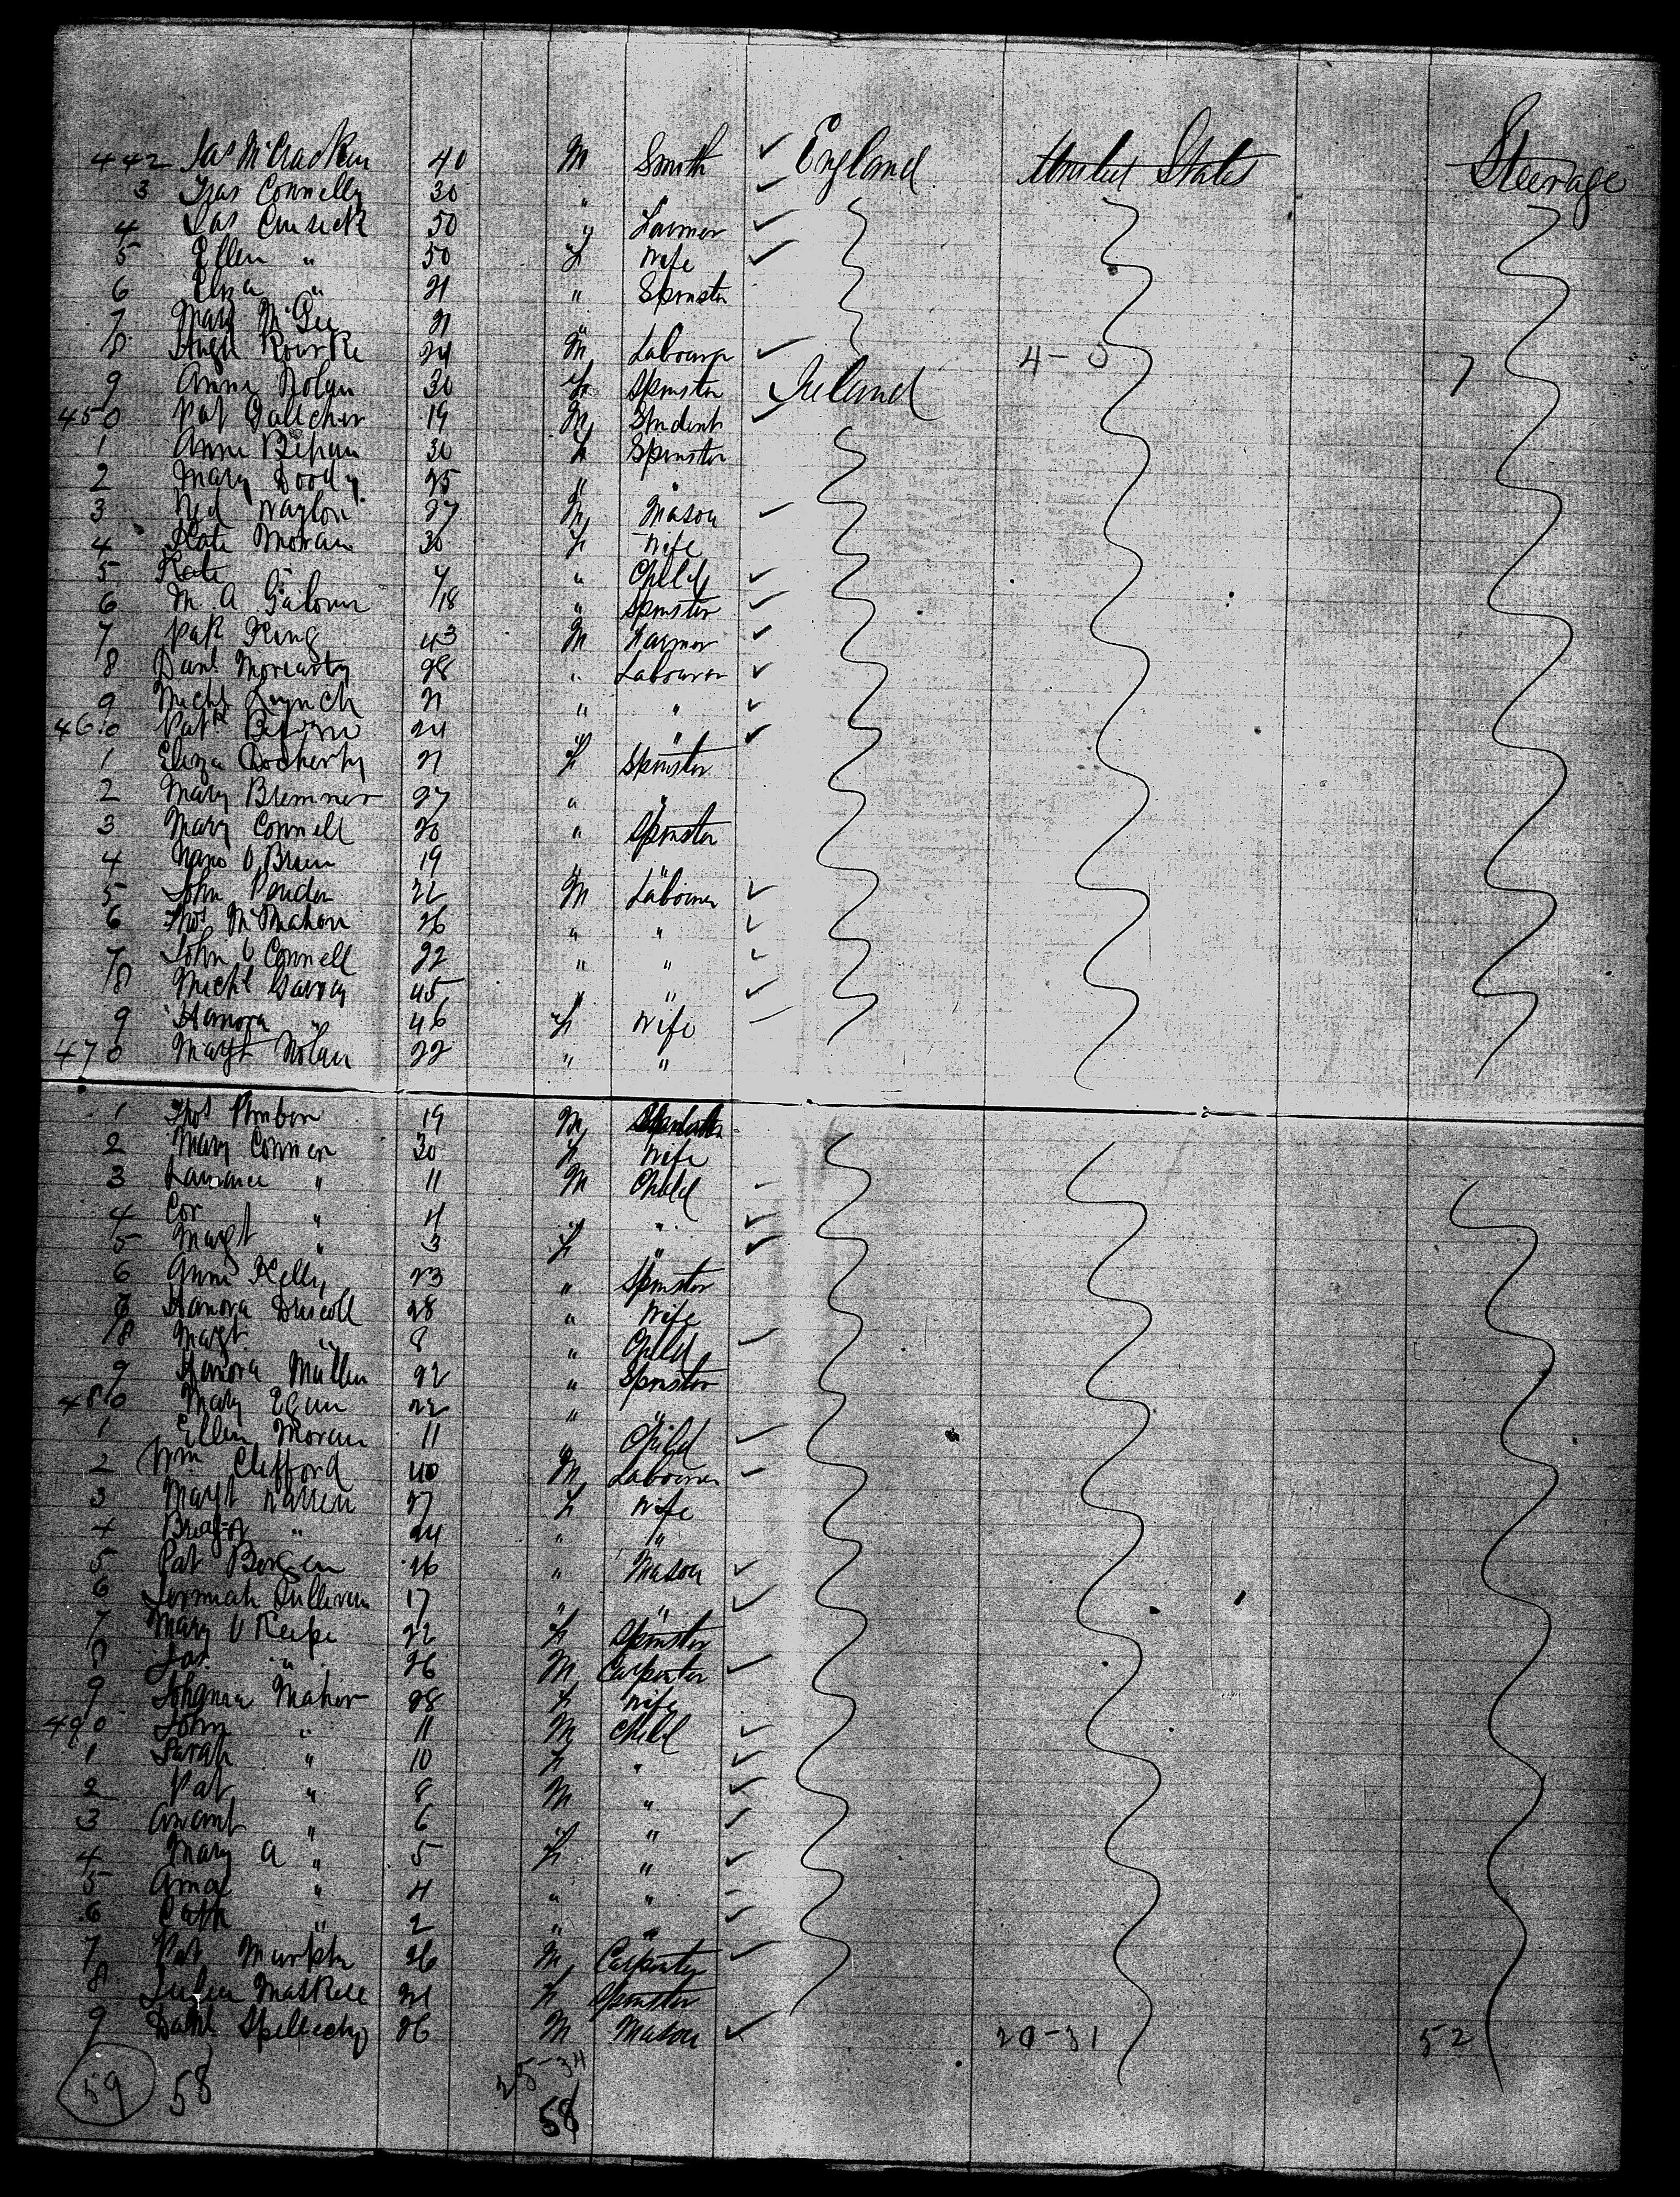 442 Jas McCracken 40 M Smith ✓ England United States Steerage
3 Fras Connelly 30 " ✓
4 Jas Cusick 50 " Farmer ✓
5 Ellen " 50 F Wife ✓
6 Eliza " 21 " Spinster
7 Mary McGee 21 "
8 Hugh Rourke 24 M Labourer ✓ 4-3 7
9 Anne Nolan 30 F Spinster Ireland
450 Pat Gallcher 19 M Student ✓
1 Anne 30 F Spinster
2 Mary Doody 25 " "
3 Ned Naylon 27 M Mason ✓
4 Kate Moran 30 F Wife
5 Kate " 4 " Child ✓
6 M. A 18 " Spinster ✓
7 Patk King 43 M Farmer ✓
8 Danl Moriarty 28 " Labourer ✓
9 Michl Lynch 21 " " ✓
460 Patk 24 " " ✓
1 Eliza Docherty 21 F Spinster
2 Mary Bremner 27 " "
3 Mary Connell 20 " Spinster
4 Nano O Brien 19 " "
5 John 22 M Labourer ✓
6 Thos McMahon 26 " " ✓
7 John O Connell 22 " " ✓
8 Michl Garvey 45 " " ✓
9 Hanora " 46 F Wife
470 Magt Nolan 22 " "
1 Thos 19 M
2 Mary Connen 30 F Wife
3 Laurance " 11 M Child ✓
4 Cor " 4 " ✓
5 Magt " 3 F " ✓
6 Anne Kelly 23 " Spinster
7 Hanora Driscoll 28 " Wife
8 Magt " 8 " Child ✓
9 Hanora Mullen 22 " Spinster
480 Mary Egan 22 " "
1 Ellen Moran 11 " Child ✓
2 Wm Clifford 40 M Labourer ✓
3 Magt Warren 27 F Wife
4 " 24 " "
5 Pat Bergen 26 " Mason ✓
6 Jermiah Sullivan 17 " " ✓
7 Mary O Keefe 22 F Spinster
8 Jas " 26 M Carpenter ✓
9 Johanna Maher 28 F Wife
490 John " 11 M Child ✓
1 Sarah " 10 F " ✓
2 Pat " 8 M " ✓
3 " 6 " " ✓
4 Mary A " 5 F " ✓
5 " 4 " "
6 Cath " 2 " " ✓
7 Pat Murphy 26 M Carpenter ✓
8 Julia Maskell 21 F Spinster
9 Danl Spellechy 26 M Mason ✓ 20-31 52
59 58 25-34
58